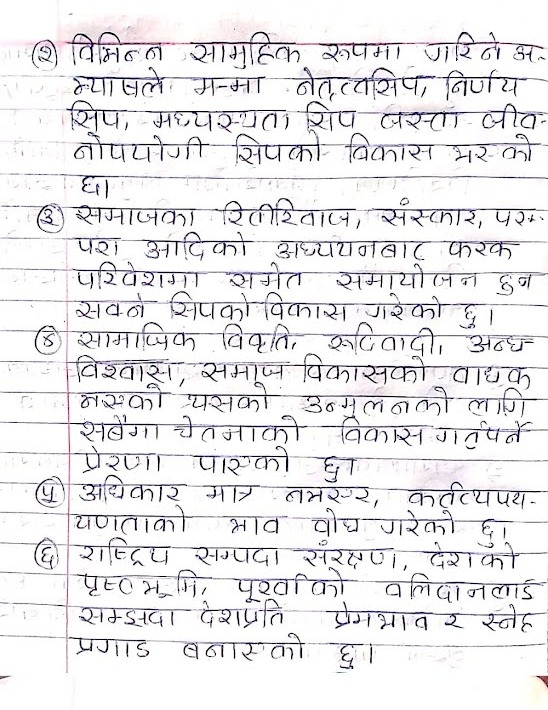 (२) विभिन्न सामुहिक रूपमा गरिने अ-
भ्यासले म-मा नेतृत्वसिप, निर्णय
सिप, मध्यस्थता सिप जस्ता जीव-
नोपयोगी सिपको विकास भएको
छ।
(३) समाजका रितीरिवाज, संस्कार, परम-
परा आदिको अध्ययनबाट फरक
परिवेशमा समेत समायोजन हुन
सक्ने सिपको विकास गरेको छु।
(४) सामाजिक विकृति, रूढिवादी, अन्ध-
विश्वास, समाज विकासको बाधक
भएको यसको उन्मुलनको लागि
सबैमा चेतनाको विकास गर्नुपर्ने
प्रेरणा पाएको छु।
(५) अधिकार मात्र नभएर, कर्तव्यपथ-
यणताको भाव बोध गरेको छु।
(६) राष्ट्रिय सम्पदा संरक्षण, देशको
पृष्ठभूमि, पूर्खाको वलिदानलाई
सम्झदा देशप्रति प्रेमभाव र स्नेह
प्रगाड बनाएको छु।